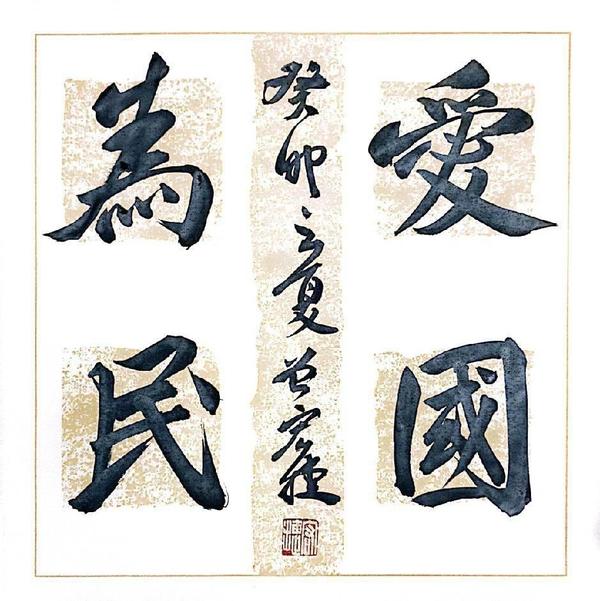 愛國
為民
癸卯之夏 曾宏